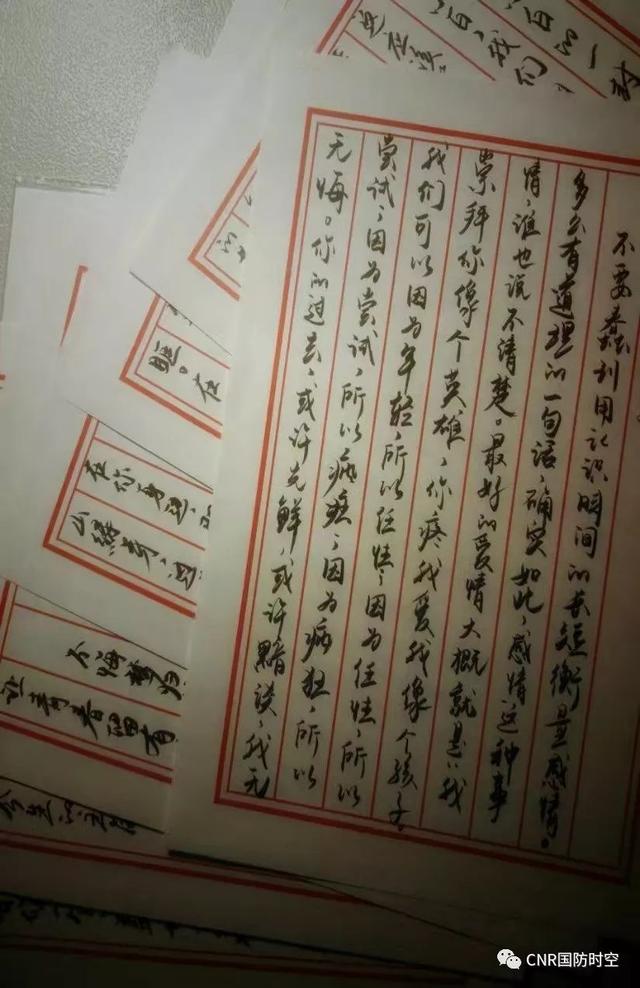 不要蠢到用认识时间的长短衡量感情。
多么有道理的一句话，确实如此，感情这种事
情，谁也说不清楚。最好的爱情大概就是：我
崇拜你像个英雄，你疼我爱我像个孩子。
我们可以因为年轻，所以任性，因为任性，所以
尝试，因为尝试，所以疯癫，因为疯狂，所以
无悔。你的过去，或许光鲜，或许黯淡，我无
我们
的一
眶。在
在你身边，
不悔梦归
让青春留有
CNR国防时空